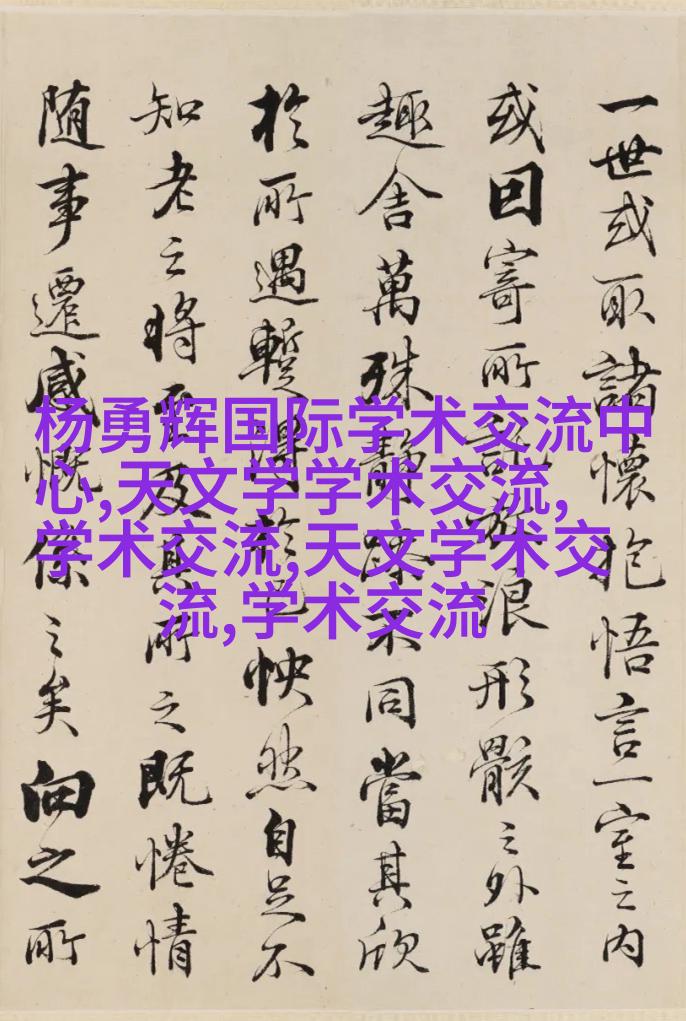 一世或取諸懷抱悟言一室之内
或因寄所託放浪形骸之外雖
趣舍萬殊静躁不同當其欣
於所遇蹔得於己怏然自足不
知老之將至及其所之既惓情
随事遷感慨係之矣向之所
杨勇辉国际学术交流中
心,天文学学术交流,
学术交流,天文学术交
流,学术交流